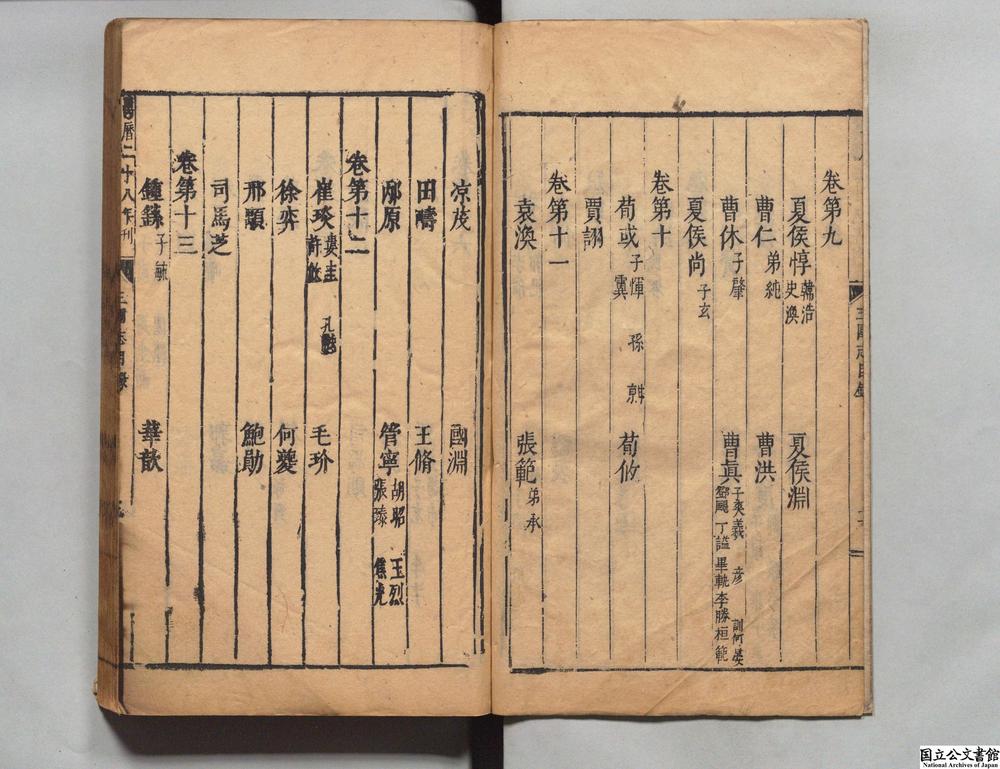 卷第九
夏侯惇 韓浩 史渙 夏侯淵
曹仁 弟純 曹洪
曹休 子肇 曹真 子爽 羲 彦 訓 何晏 鄧颺 丁謐 畢軌 李勝 桓範
夏侯尚 子玄
卷第十
荀彧 子惲 孫 荀攸
賈詡
卷第十一
袁渙 張範 弟承
三國志目錄
凉茂 國淵
田疇 王脩
邴原 管寧 胡昭 王烈 張臶 焦光
卷第十二
崔琰 婁圭 許攸 孔融 毛玠
徐弈 何夔
邢顒 鮑勛
司馬芝
卷第十三
鍾繇 子毓 華歆
萬曆二十八年刊 三國志目錄
国立公文書館
National Archives of Japan